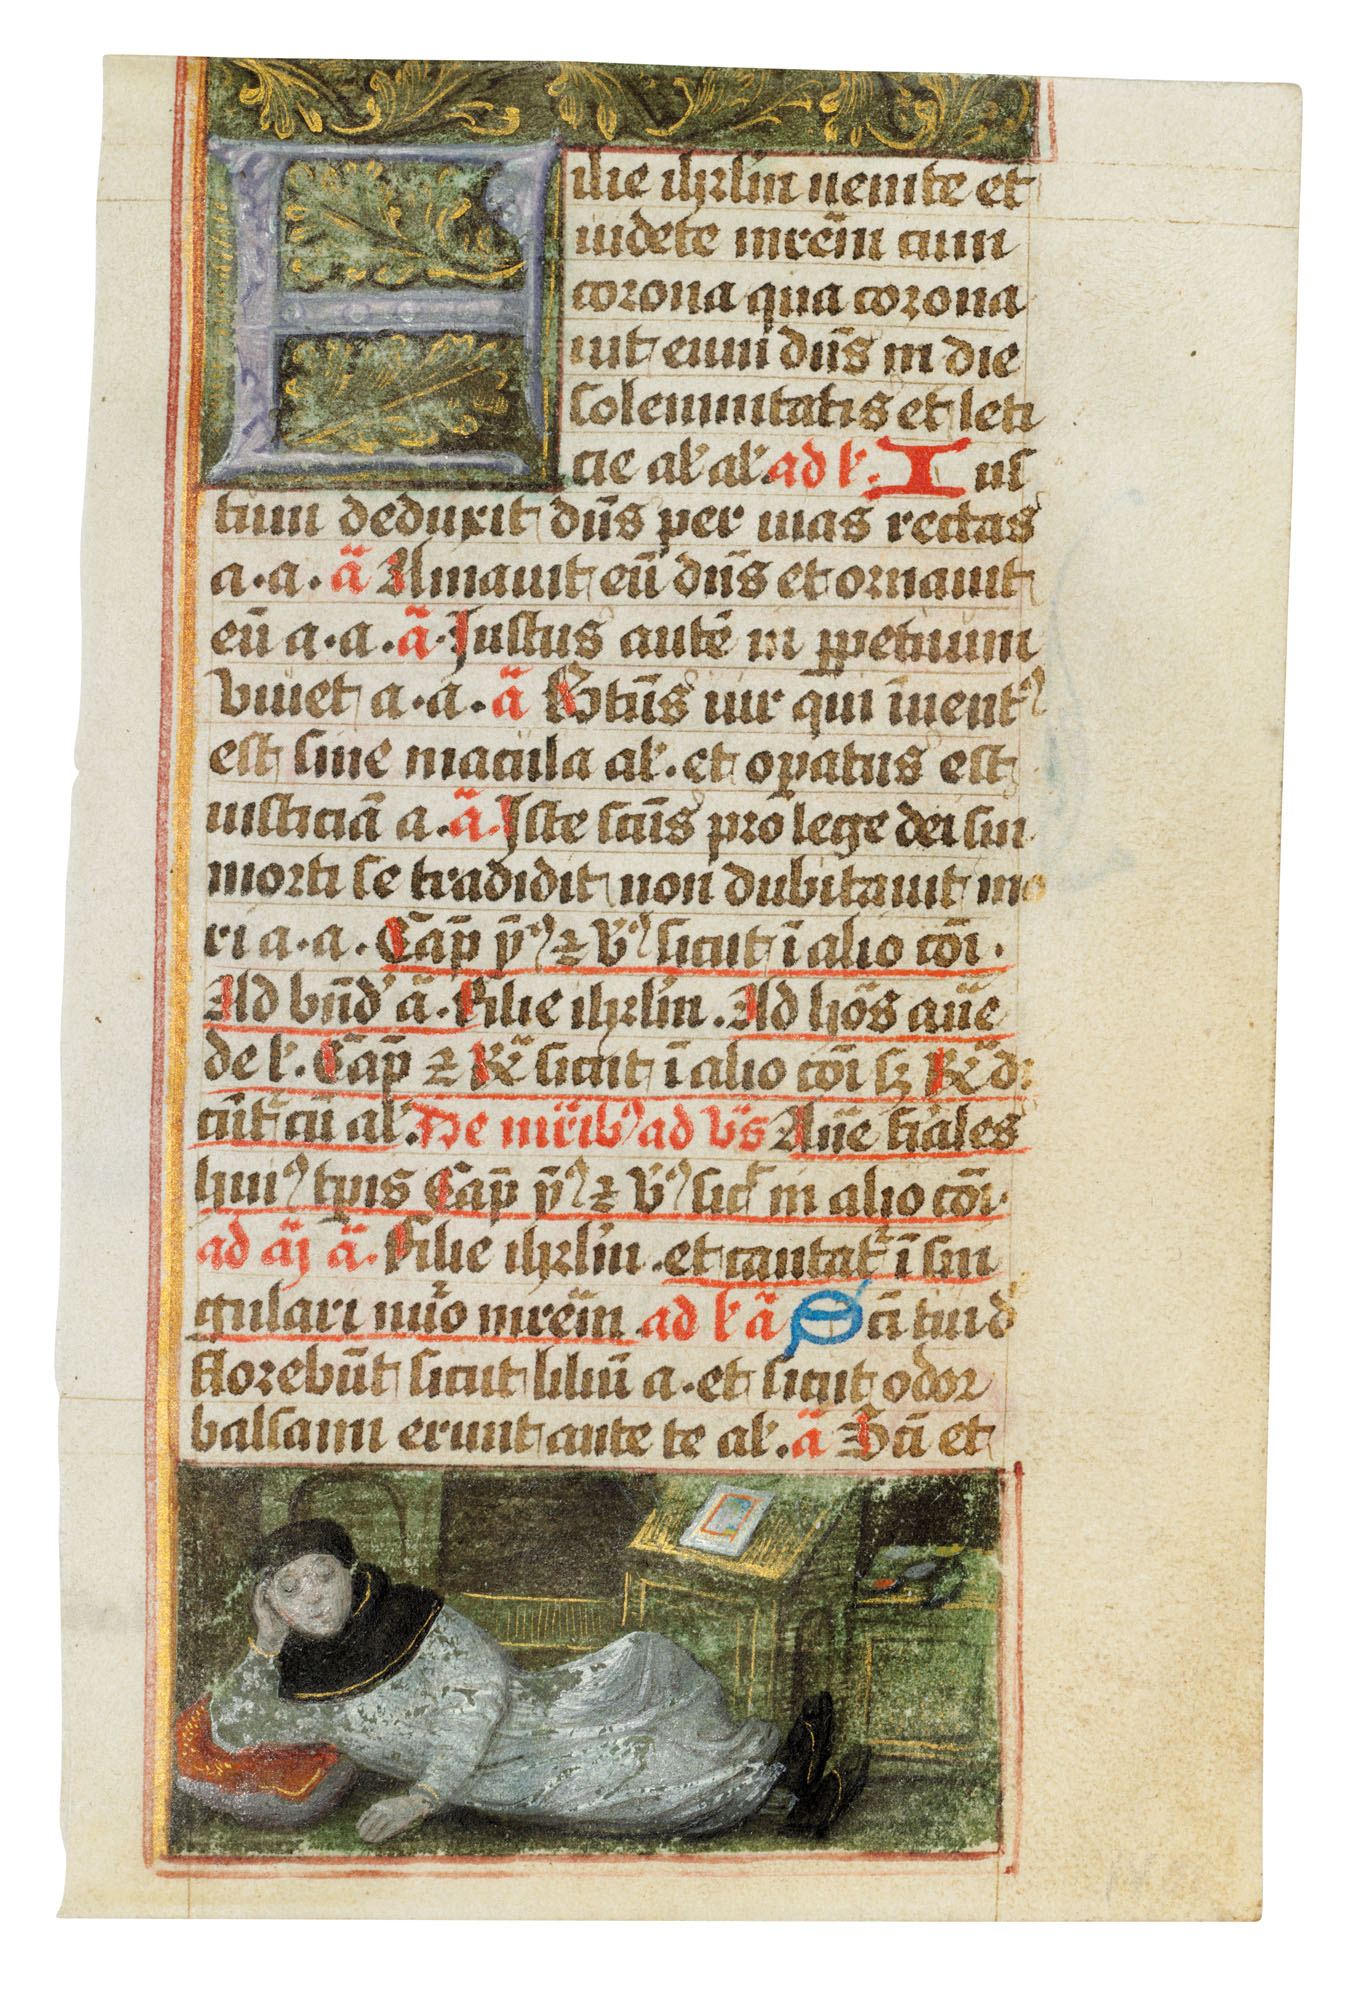 Filie ihrlm uenite et
uidete mrem cum
corona qua corona
uit eum dns in die
solemnitatis et leti
cie al al. ad l. Ius
tum deduxit dns per uias rectas
a.a. ā Amauit eū dns et ornauit
eū a.a. ā. Iustus autē in ppetuum
viuet a.a. ā btus uir qui iuent9
est sine macula al. et opatus est
iusticiā a. ā. Iste scūs pro lege dei sui
morti se tradidit non dubitauit mo
ri a.a. Cap y9 ⁊ v9 sicut ī alio cōi.
Ad bnd ā. Filie ihrlm. Ad hōs anē
de l. Cap ⁊ R sicut ī alio cōi sꝫ R d:
cūt cū al. De mrib9 ad vs Anē feales
hui9 tpis Cap y9 ⁊ v9 sic in alio cōi.
ad ā ā. Filie ihrlm. et cantat ī sin
gulari nūo mrem ad l ā Scī tui d
florebūt sicut liliū a. et sicut odor
balsami erunt ante te al. ā Scī et